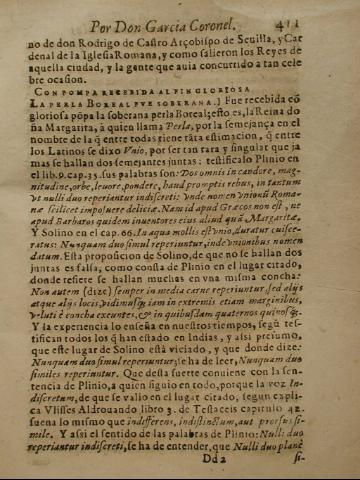 Por Don Garcia Coronel. 411
no de don Rodrigo de Castro Arçobispo de Seuilla, y Car
denal de la Iglesia Romana, y como salieron los Reyes de
aquella ciudad, y la gente que auia concurrido a tan cele
bre ocasion.
CON POMPA RECEBIDA AL FIN GLORIOSA
LA PERLA BOREAL FVE SOBERANA.] Fue recebida cō
gloriosa pōpa la soberana perla Boreal; esto es, la Reina do
ña Margarita, à quien llama Perla, por la semejança en el
nombre de la q̄ entre todas tiene tāta estimacion, q̄ entre
los Latinos se dixo Vnio, por ser tan rara y singular que ja
mas se hallan dos semejantes juntas: testificalo Plinio en
el lib.9.cap.35. sus palabras son: Dos omnis in candore, mag-
nitudine, orbe, leuore, pondere, haud promptis rebus, in tantum
vt nulli duo reperiantur indiscreti: vnde nomen vnionū Roma-
næ scilicet imposuere deliciæ. Nam id apud Græcos non est, ne
apud Barbaros quidem inuentores eius aliud quā Margaritæ,
Y Solino en el cap.66. In aqua mollis est vnio, duratur cuisce-
ratus: Nunquam duo simul reperiuntur, inde vnionibus nomen
datum. Esta proposicion de Solino, de que no se hallan dos
juntas es falsa, como consta de Plinio en el lugar citado,
donde refiere se hallan muchas en vna misma concha:
Non autem (dize) semper in media carne reperiuntur, sed alijs
atque alijs locis, vidimusq́; iam in extremis etiam marginibus,
veluti è concha exeuntes, & in quibusdam quaternos quinosq́;
Y la experiencia lo enseña en nuestros tiempos, segū tes-
tifican todos los q̄ han estado en Indias, y assi presumo,
que este lugar de Solino està viciado, y que donde dize:
Nunquam duo simul reperiuntur; se ha de leer, Nunquam duo
similes reperiuntur. Que desta suerte conuiene con la sen-
tencia de Plinio, a quien siguio en todo, porque la voz In-
discretum, de que se valio en el lugar citado, segun expli-
ca Vlisses Aldrouando libro 3. de Testaceis capitulo 42.
suena lo mismo que indifferens, indistinctum, aut prorsus si-
mile. Y assi el sentido de las palabras de Plinio: Nulli duo
reperiantur indiscreti, se ha de entender, que Nulli duo planè
Dd 2 si-